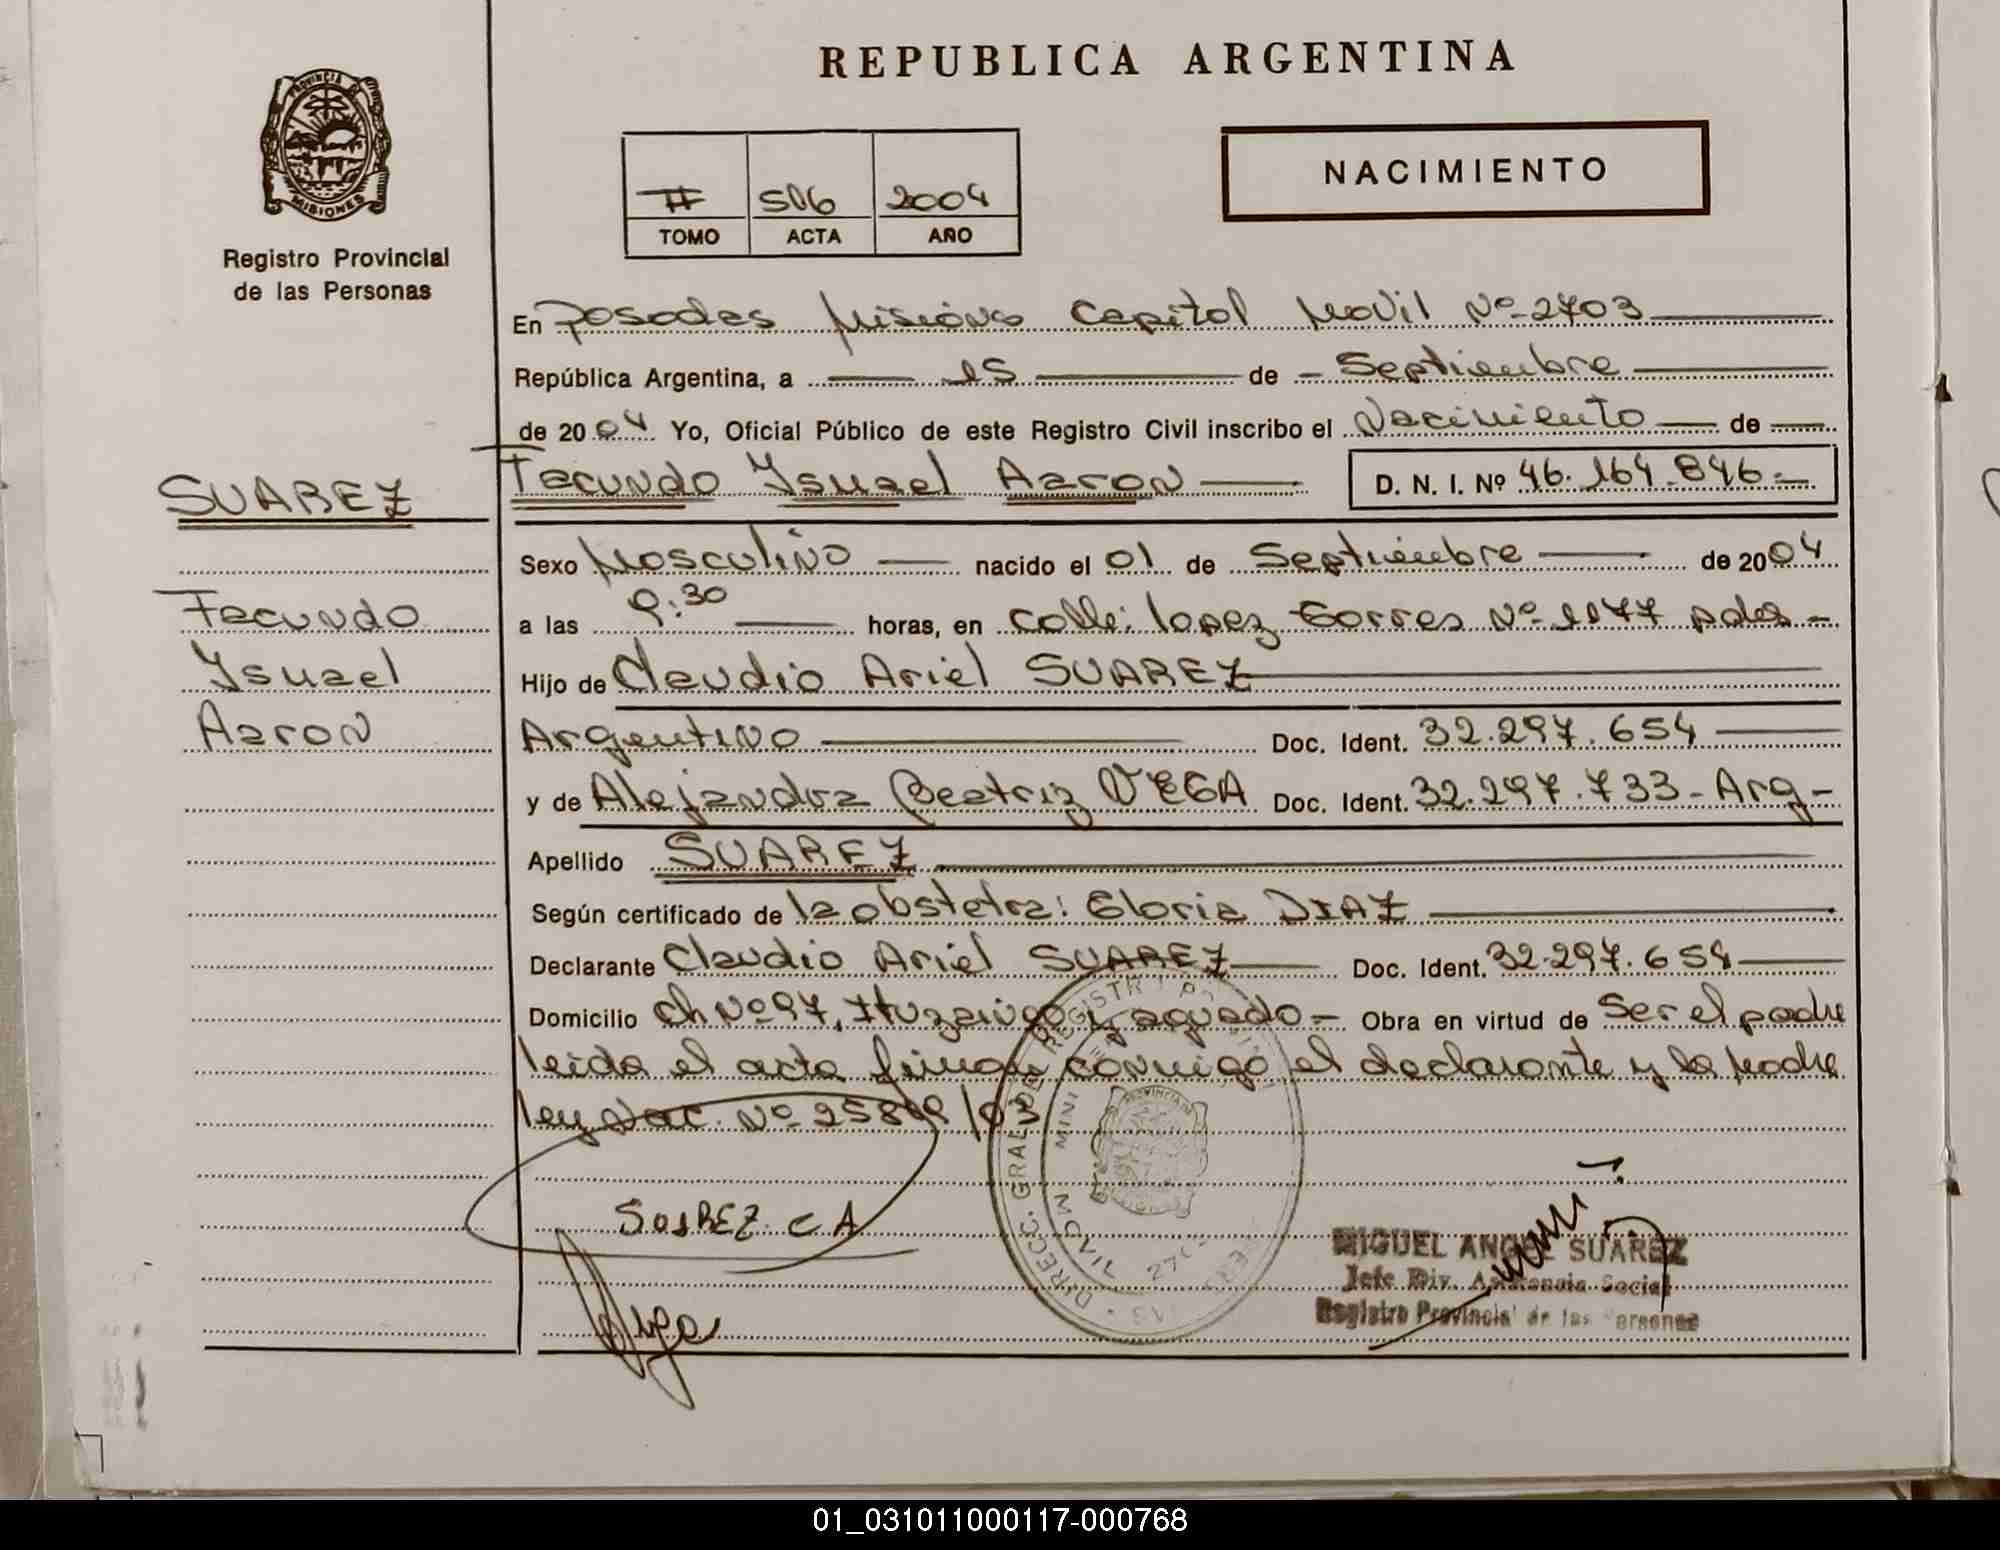 REPUBLICA ARGENTINA
PROVINCIA DE
MISIONES
Registro Provincial
de las Personas
NACIMIENTO
II 506 2004
TOMO ACTA AÑO
En Posadas Misiones Capital Movil Nº 2703
República Argentina, a 15 de Septiembre
de 2004 Yo, Oficial Público de este Registro Civil inscribo el Nacimiento de
SUAREZ
Facundo Ysmael Aaron D. N. I. Nº 46.164.846.-
Sexo Masculino nacido el 01 de Septiembre de 2004
Facundo
a las 9:30 horas, en calle: lopez torres Nº 1177 pdas-
Ysmael
Hijo de Claudio Ariel SUAREZ
Aaron
Argentino Doc. Ident. 32.297.654
y de Alejandra Beatriz VEGA Doc. Ident. 32.297.733- Arg-
Apellido SUAREZ
Según certificado de la obstetra: Gloria DIAZ
Declarante Claudio Ariel SUAREZ Doc. Ident. 32.297.654
Domicilio Ch Nº 97, Ituzaingo y aguado- Obra en virtud de Ser el padre
leida el acta firman conmigo el declarante y la Madre
ley Nac. Nº /03
DIRECC. GRAL. DEL REGISTR
MOVIL 270
PROVINCIA
SUAREZ C A
MIGUEL ANGEL SUAREZ
Jefe Div. Asistencia Social
Registro Provincial de las Personas
01_031011000117-000768